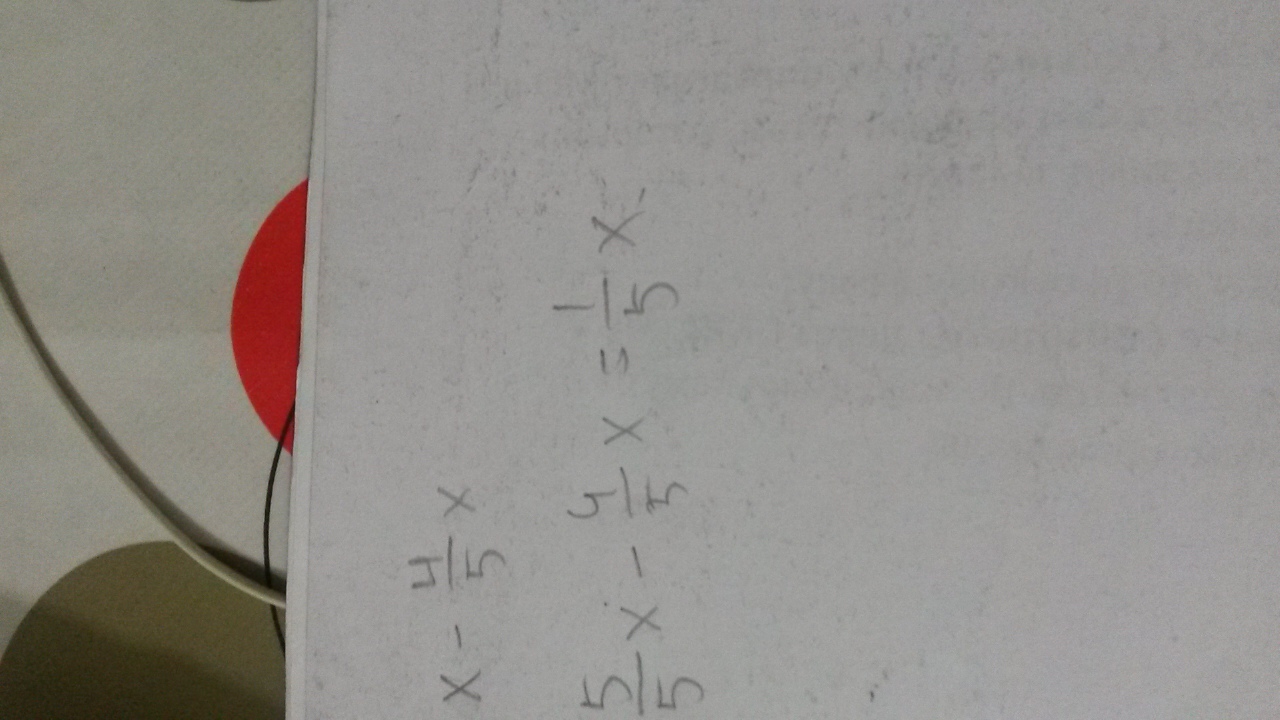 x - 4/5 x
5/5 x - 4/5 x = 1/5 x